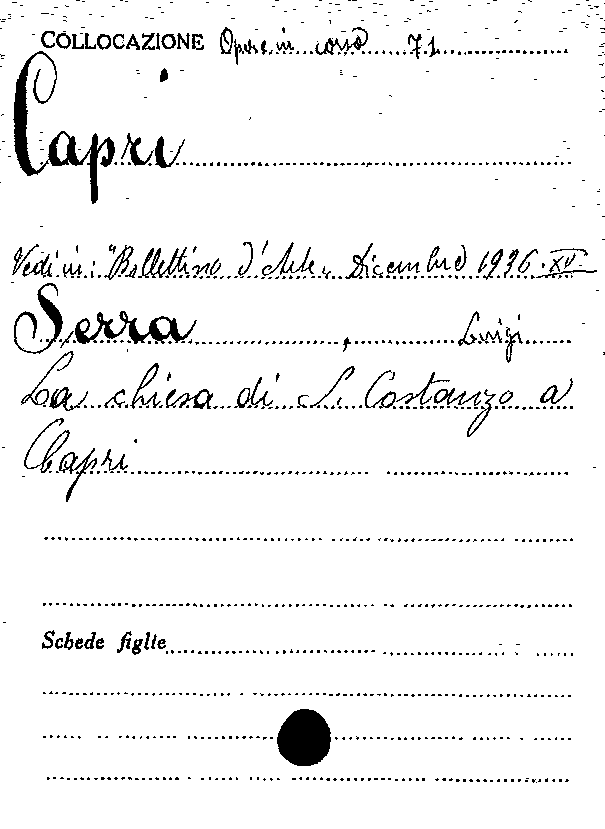 COLLOCAZIONE Opere in corso 71
Capri
Vedi in: "Bollettino d'Arte" Dicembre 1936. XV
Serra, Luigi
La chiesa di S. Costanzo a
Capri
Schede figlie